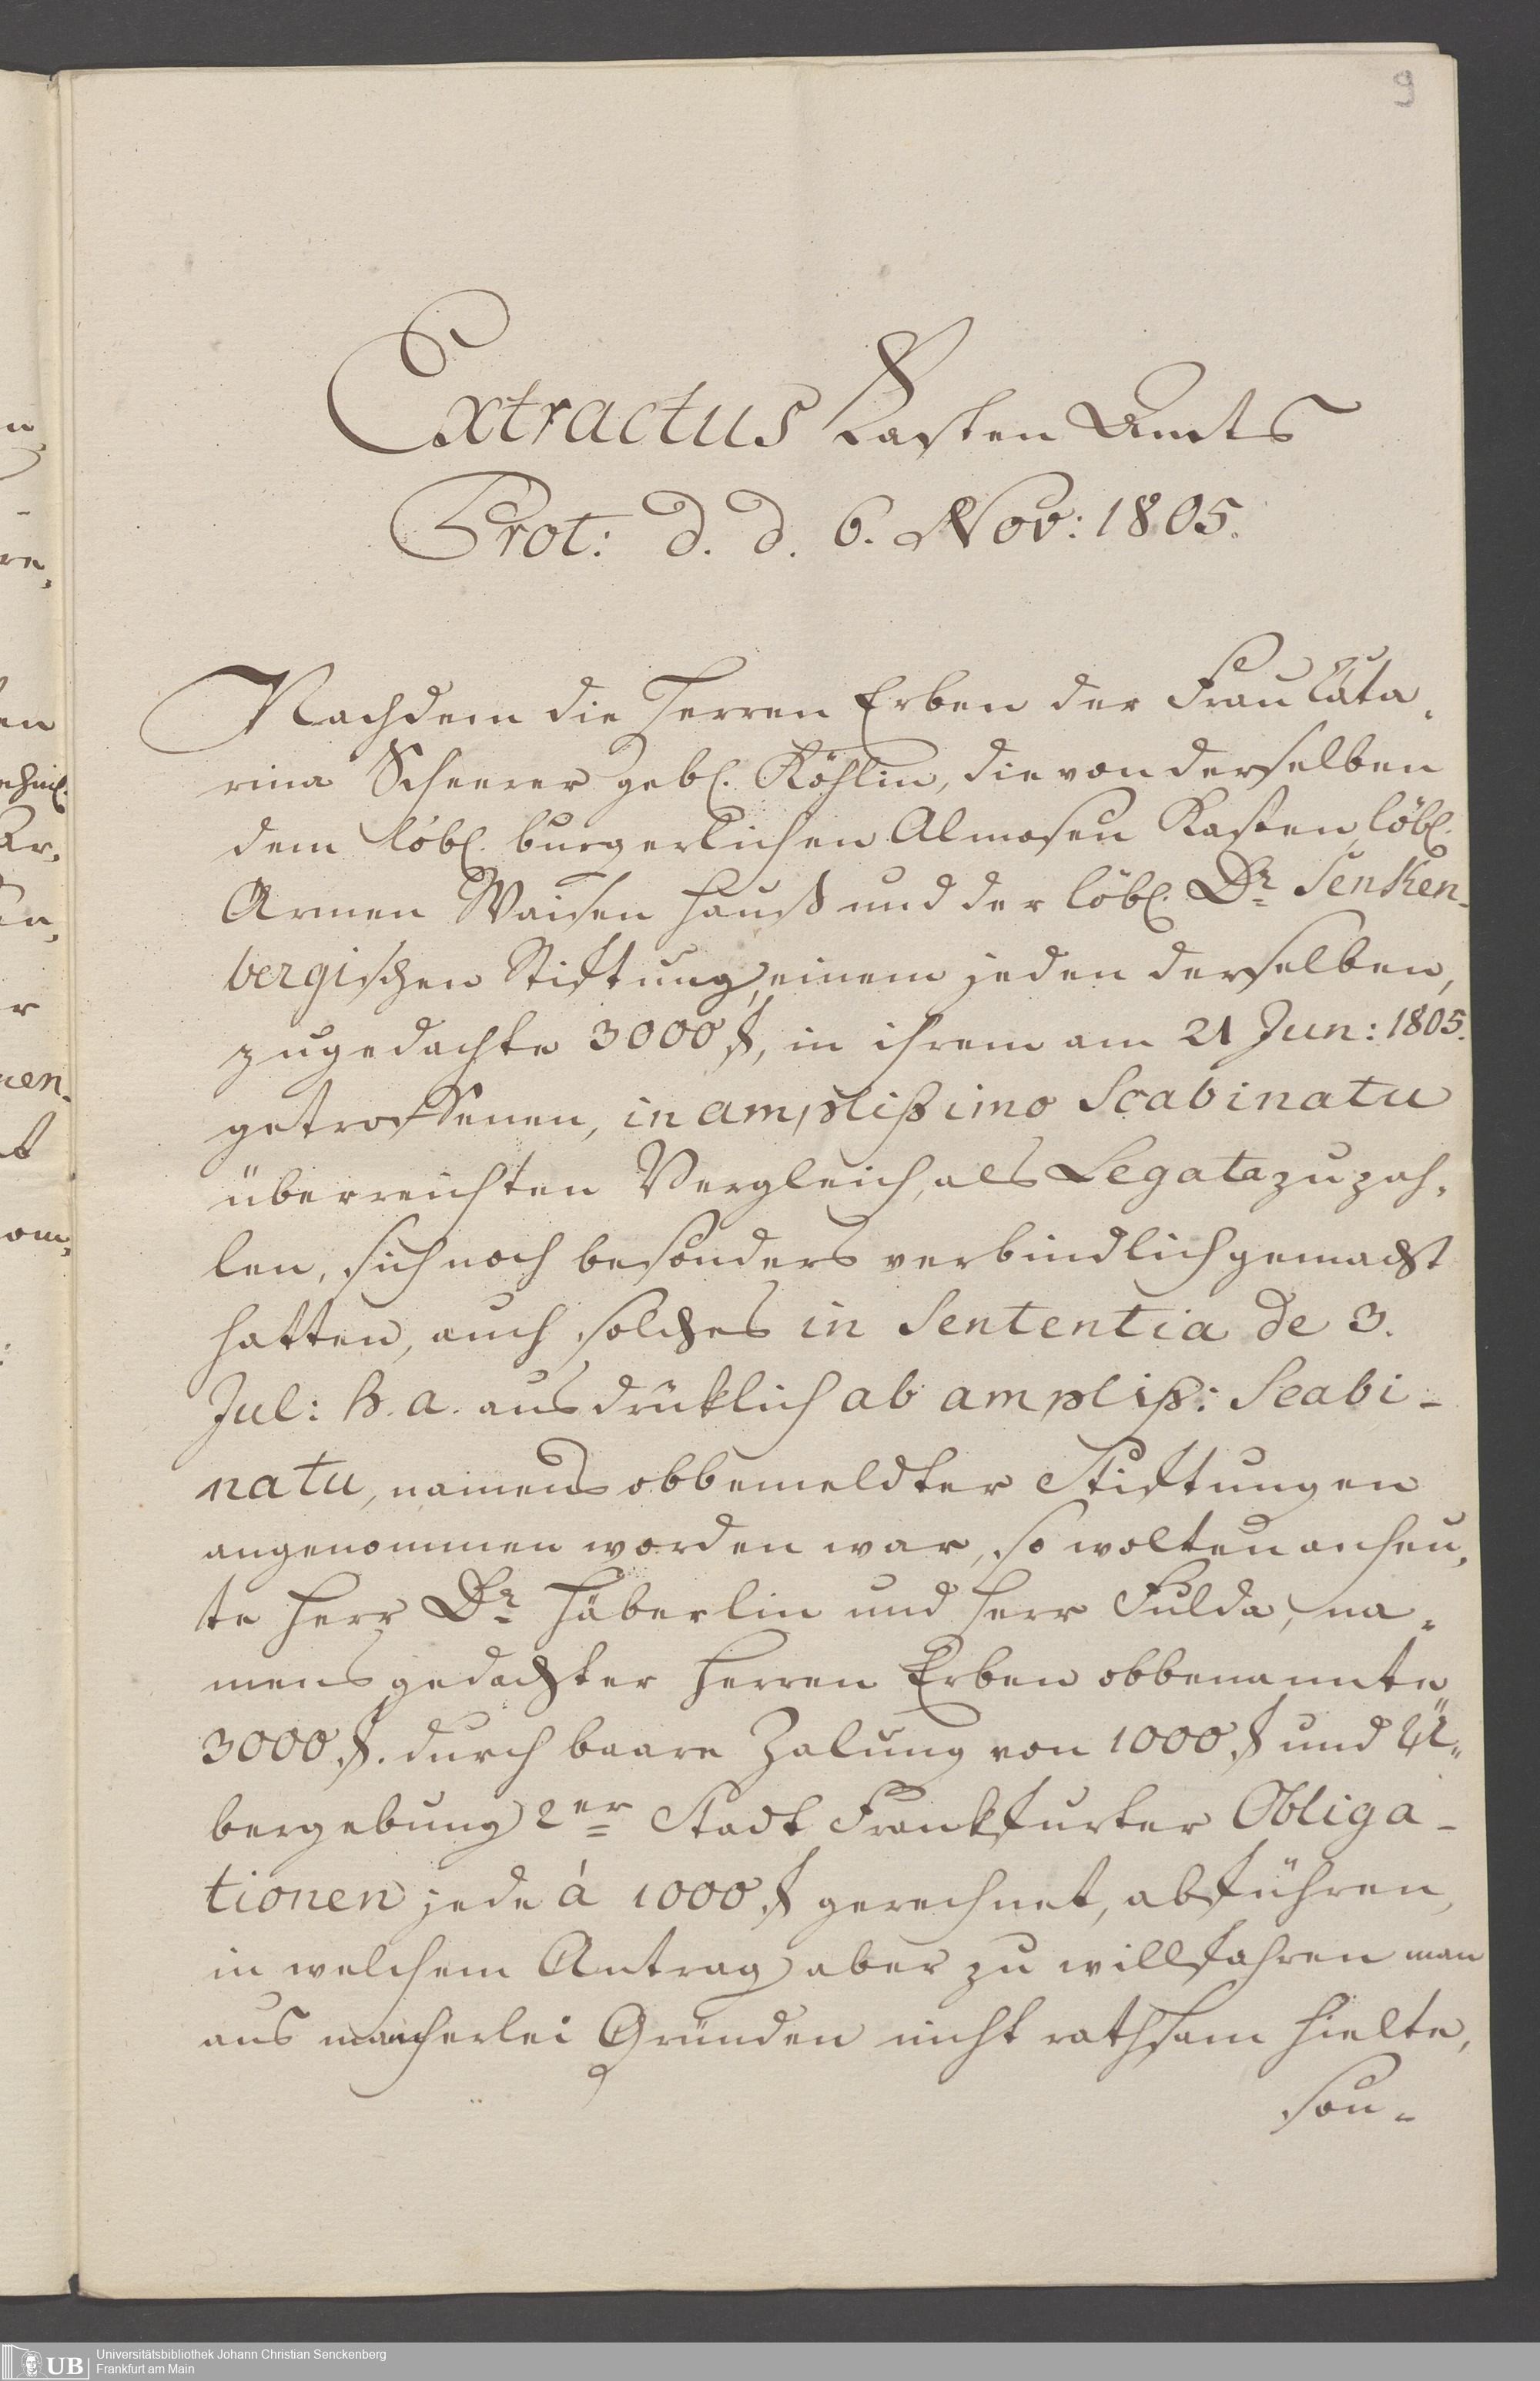 9
Extractus Kasten Amts
Prot: d. d. 6. Nov: 1805.
Nachdem die Herren Erben der Frau Cata-
rina Scheerer geb. Köhlin, die von derselben
dem löbl. burgerlichen Almosen Kasten, löbl.
Armen Waisen Hauß und der löbl. Dr. Senken-
bergischen Stiftung, einem jeden derselben,
zugedachte 3000 f, in ihrem am 21 Jun: 1805.
getroffenen, in amplißimo Scabinatu
überreichten Vergleich, als Legata zu zah-
len, sich noch besonders verbindlich gemacht
hatten, auch solches in Sententia de 3.
Jul: h. a. ausdrüklich ab ampliß: Scabi-
natu, namens obbemeldter Stiftungen
angenommen worden war, so wolten anheu-
te Herr Dr. Häberlin und Herr Fulda, na-
mens gedachter Herren Erben obbenannte
3000 f. durch baare Zalung von 1000 f und Ü-
bergebung 2er Stadt Frankfurter Obliga-
tionen jede á 1000 f gerechnet, abführen,
in welchem Antrag aber zu willfahren man
aus mancherlei Gründen nicht rathsam hielte,
son-
n
-
re,
en
Ar-
en,
r
nen-
t
om,
UB
Universitätsbibliothek Johann Christian Senckenberg
Frankfurt am Main